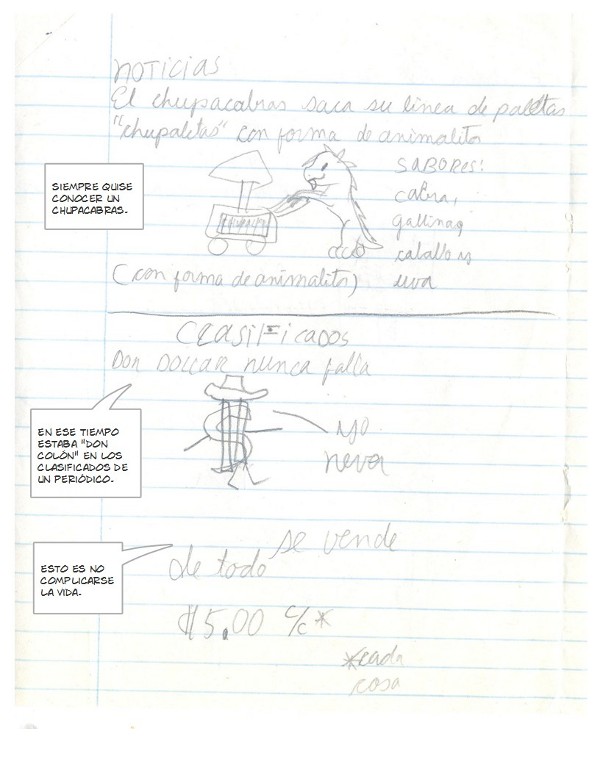 NOTICIAS
El chupacabras saca su línea de paletas
"chupaletas" con forma de animalito
SABORES:
cabra,
gallina,
caballo y
uva
(con forma de animalito)
SIEMPRE QUISE
CONOCER UN
CHUPACABRAS.
CLASIFICADOS
Don DOLLAR nunca falla
yo
never
EN ESE TIEMPO
ESTABA "DON
COLÓN" EN LOS
CLASIFICADOS DE
UN PERIÓDICO.
se vende
de todo
$5.00 c/c*
*cada
cosa
ESTO ES NO
COMPLICARSE
LA VIDA.